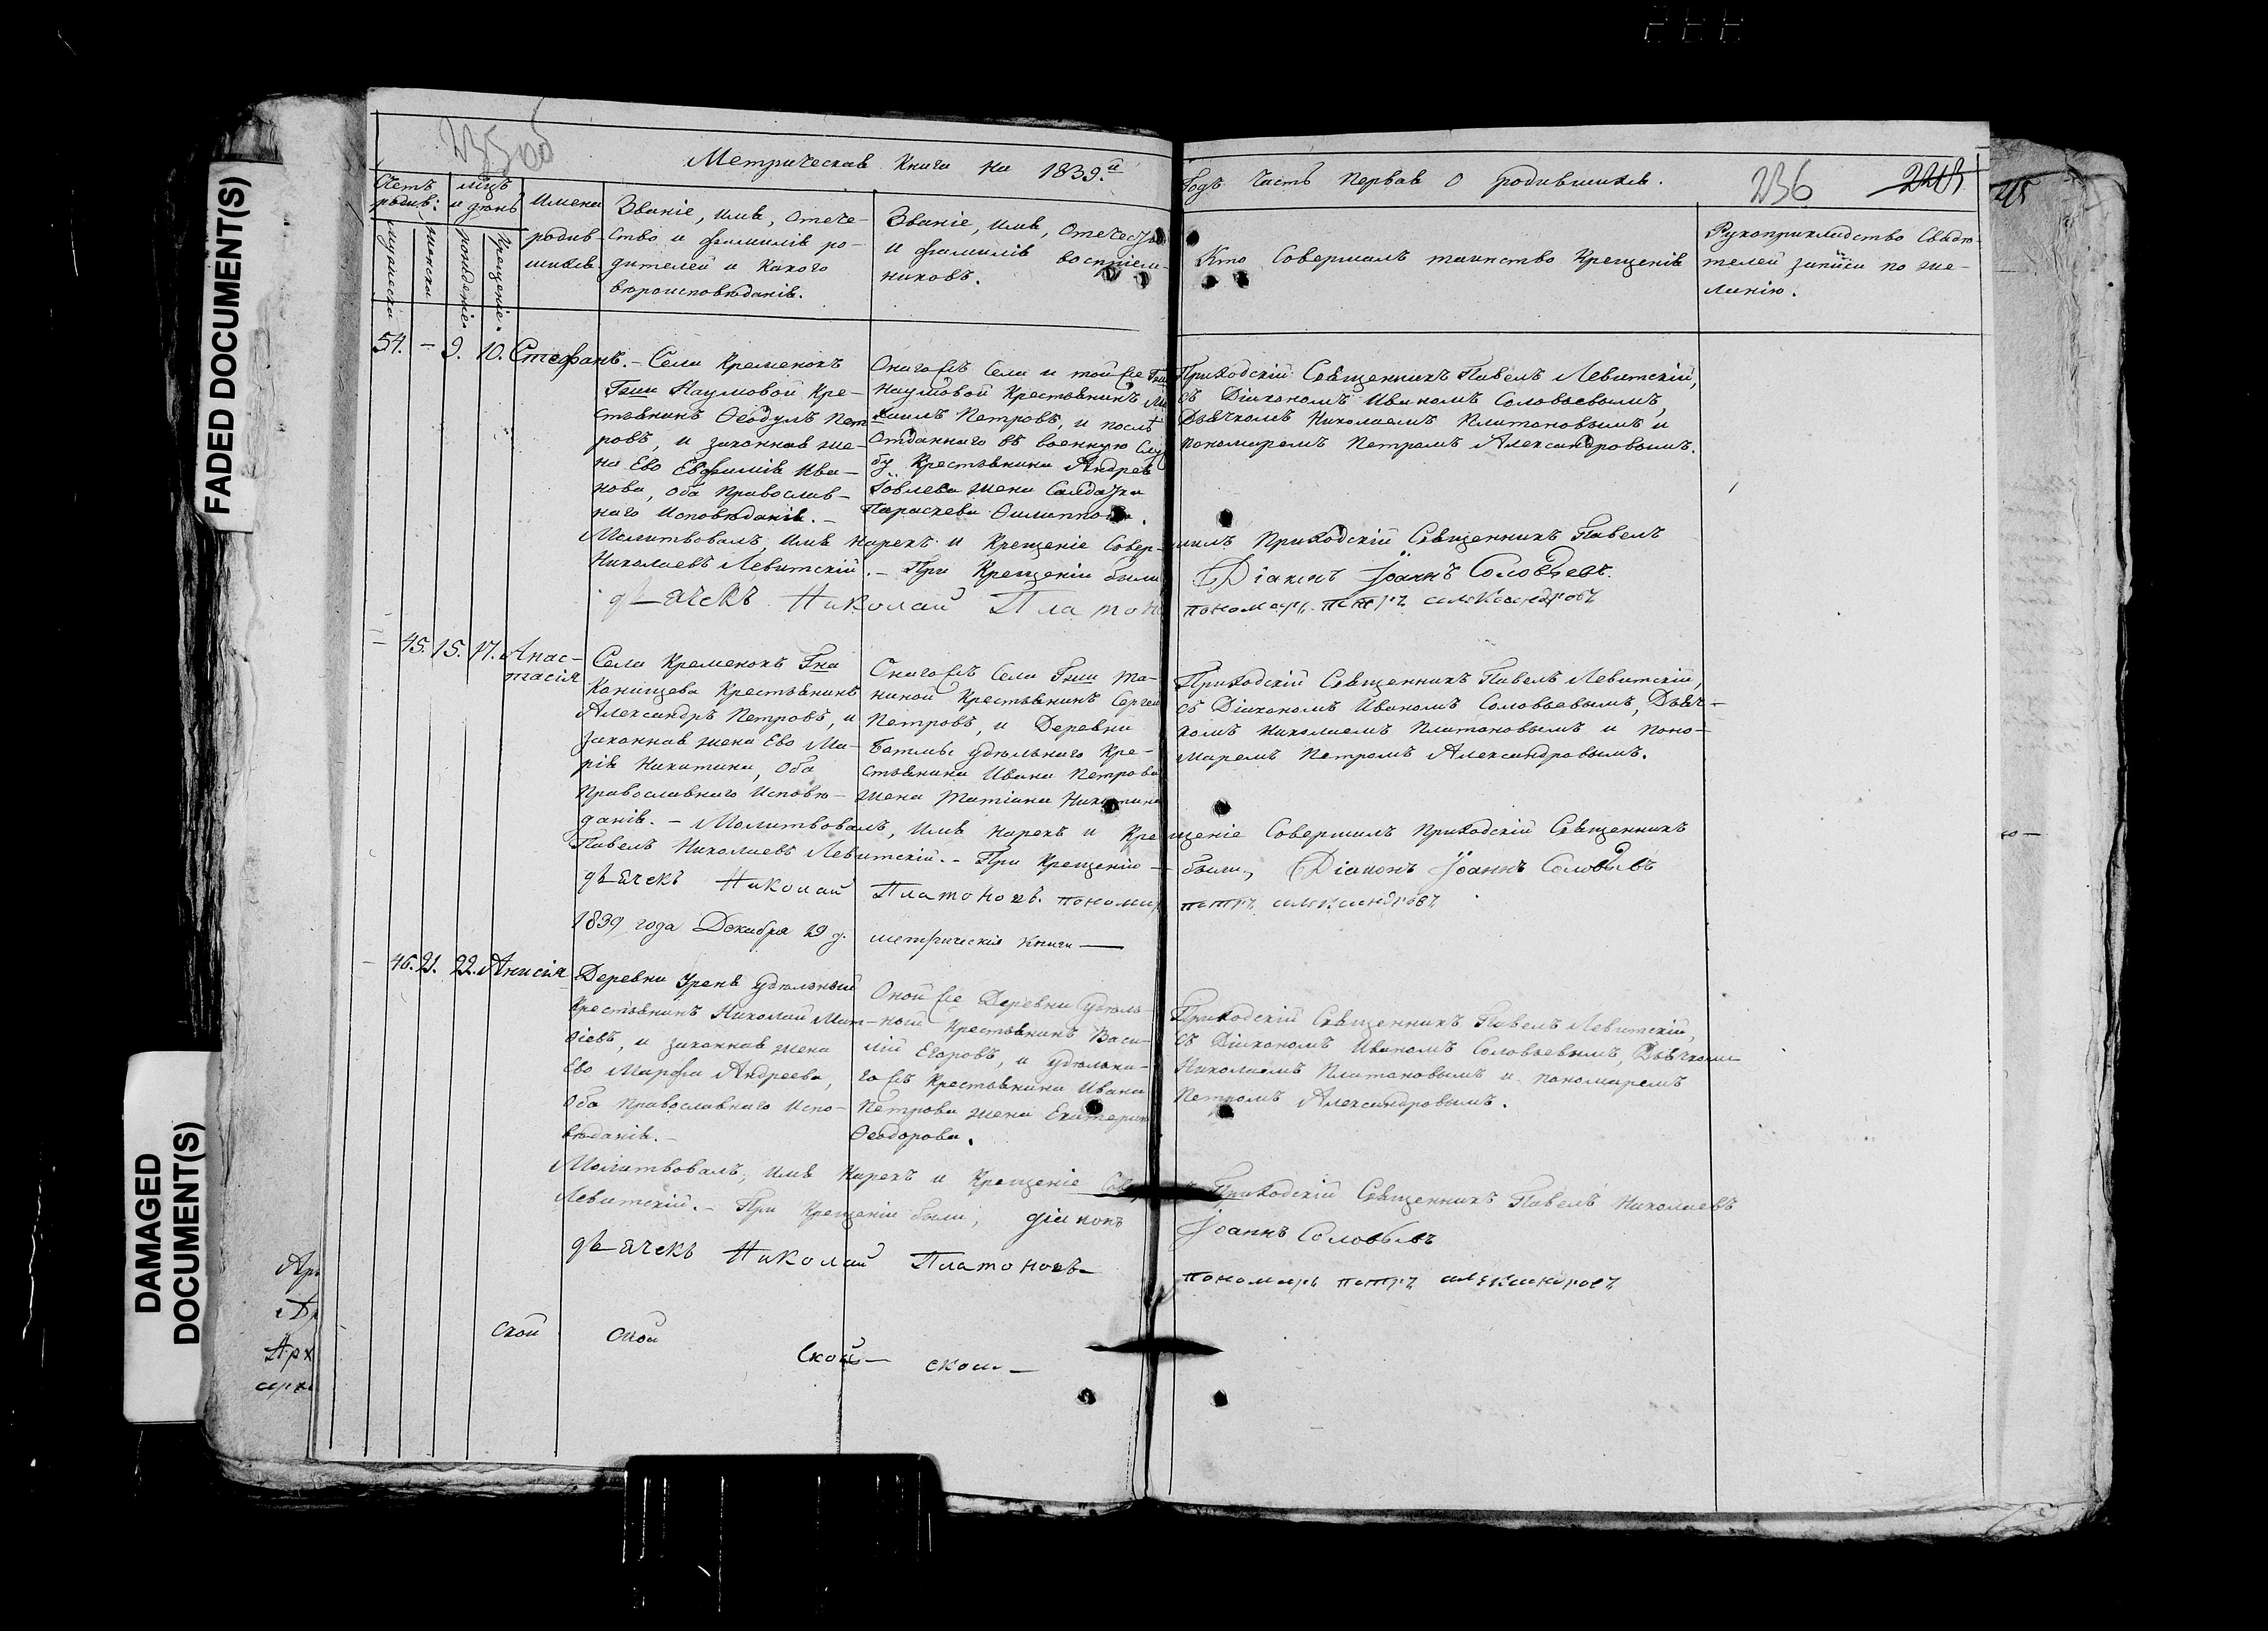 FADED DOCUMENT(S)
DAMAGED
DOCUMENT(S)
235
Метрическая Книга на 1839.й
Годъ Часть Первая О родившихся.
236
Счетъ
родив:
мужеска
женска
мцъ
и день
рожденіе.
крещеніе.
Имена
родив-
шихся
Званіе, имя, Отече-
ство и фамилія ро-
дителей и Какого
вѣроисповѣданія.
Званіе, имя, Отечество
и фамилія воспріем-
никовъ.
Кто Совершалъ таинство Крещенія
Рукоприкладство Свидѣ-
телей записи по же-
ланію.
54. - 9. 10. Стефанъ. -
Села Кременокъ
Гжи Наумовой Кре-
стьянинъ Ѳеодулъ Пет
ровъ, и законная же-
на Ево Евфимія Ива-
нова, оба Православ-
наго Исповѣданія. -
Онагожъ Села и той же Гжи
Наумовой Крестьянинъ Ми
хаилъ Петровъ, и послѣ
Отданнаго въ военную Слу
бу Крестьянина Андрея
Іовлева жена Салдатка
Параскева Филиппова.
Приходскій Священникъ Павелъ Левитскій,
съ Діакономъ Иваномъ Соловьевымъ,
Дьячкомъ Николаемъ Платоновымъ и
пономаремъ Петромъ Александровымъ.
Молитвовалъ, имя нарекъ и Крещеніе Совер-шилъ Приходскій Священникъ Павелъ
Николаевъ Левитскій. - При Крещеніи были Діаконъ Іоаннъ Соловьевъ.
дьячекъ Николай Платоно пономарь петръ александровъ
- 45. 15. 17. Анас-
тасія
Села Кременокъ Гна
Канищева Крестьянинъ
Александръ Петровъ, и
законная жена Ево Ма-
рія Никитина, Оба
Православнаго Исповѣ-
данія. -
Онагожъ Села Гжи Та-
ниной Крестьянинъ Сергей
Петровъ, и Деревни
Ботмы удѣльнаго Кре-
стьянина Ивана Петрова
жена Татіана Никитина
Приходскій Священникъ Павелъ Левитскій,
съ Діакономъ Иваномъ Соловьевымъ, Дьяч-
комъ Николаемъ Платоновымъ и поно-
маремъ Петромъ Александровымъ.
Молитвовалъ, Имя нарекъ и Крещеніе Совершилъ Приходскій Священникъ
Павелъ Николаевъ Левитскій. - При Крещеніи - были, Діаконъ Іоаннъ Соловьевъ
дьячекъ Николай Платоновъ. пономарь петръ александровъ
1839 года Декабря 29 д. метрическія книги —
- 46. 21. 22. Анисія
Деревни Уреня удѣльный
Крестьянинъ Николай Мат-
ѳіевъ, и законная жена
Ево Марфа Андреева,
Оба Православнаго Испо-
вѣданія. -
Оной же Деревни удѣль-
ный Крестьянинъ Васи-
лій Егоровъ, и удѣльна-
гожъ Крестьянина Ивана
Петрова жена Екатерина
Ѳеодорова.
Приходскій Священникъ Павелъ Левитскій,
съ Діакономъ Иваномъ Соловьевымъ, Дьячкомъ
Николаемъ Платоновымъ и пономаремъ
Петромъ Александровымъ.
Молитвовалъ, имя Нарекъ и Крещеніе Приходскій Священникъ Павелъ Николаевъ
Левитскій. - При Крещеніи были, діаконъ Іоаннъ Соловьевъ
дьячекъ Николай Платоновъ пономарь петръ александровъ
ской
ской